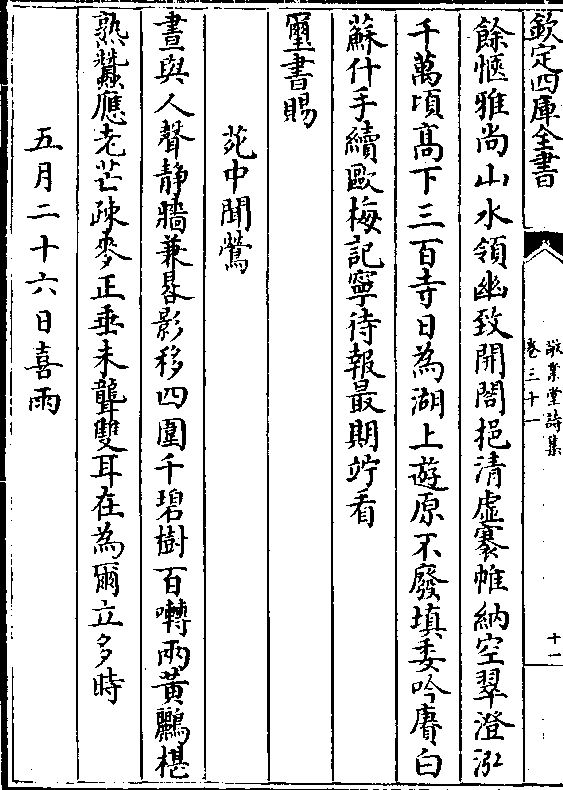 欽定四庫全書
敬業堂詩集
卷三十一
十一
餘愜雅尚山水領幽致開閤挹清虛褰帷納空翠澄泓
千萬頃髙下三百寺日為湖上遊原不廢填委吟賡白
蘇什手續歐梅記寧待報最期竚看
璽書賜
苑中聞鶯
晝與人聲靜牆兼晷影移四圍千碧樹百囀兩黃鸝椹
熟蠶應老芒疎麥正垂未聾雙耳在為爾立多時
五月二十六日喜雨